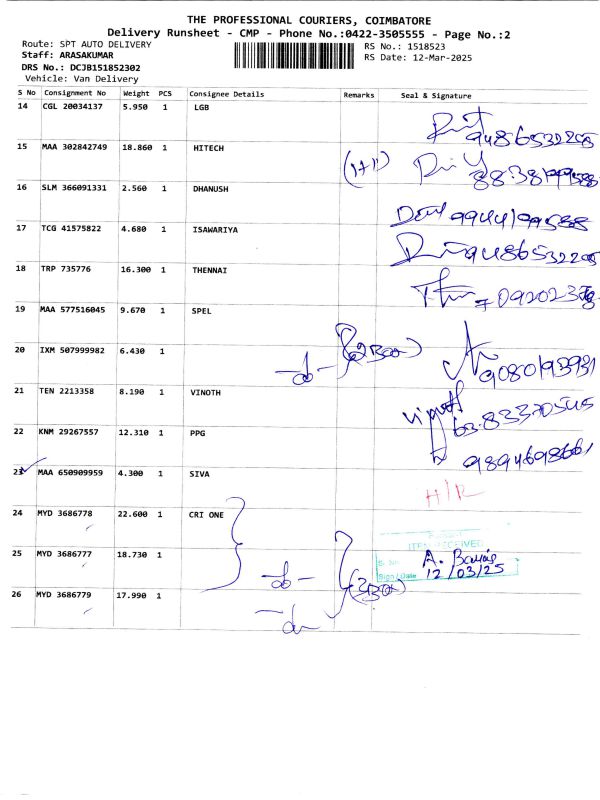 THE PROFESSIONAL COURIERS, COIMBATORE
Delivery Runsheet - CMP - Phone No.:0422-3505555 - Page No.:2
Route: SPT AUTO DELIVERY
RS No.: 1518523
Staff: ARASAKUMAR
RS Date: 12-Mar-2025
DRS No.: DCJB151852302
Vehicle: Van Delivery
S No Consignment No Weight PCS Consignee Details Remarks Seal & Signature
14 CGL 20034137 5.950 1 LGB
9486532208
15 MAA 302842749 18.860 1 HITECH
(1+1)
16 SLM 366091331 2.560 1 DHANUSH
9944199588
17 TCG 41575822 4.680 1 ISAWARIYA
9486532208
18 TRP 735776 16.300 1 THENNAI
19 MAA 577516045 9.670 1 SPEL
20 IXM 507999982 6.430 1
-do- (2Box)
9080193931
21 TEN 2213358 8.190 1 VINOTH
Vinoth
22 KNM 29267557 12.310 1 PPG
9894698661
23 MAA 650909959 4.300 1 SIVA
H/R
24 MYD 3686778 22.600 1 CRI ONE
ITEM RECEIVED
25 MYD 3686777 18.730 1
Sr. No.
Sign / Date 12/03/25
-do- (3Box)
26 MYD 3686779 17.990 1
-do-